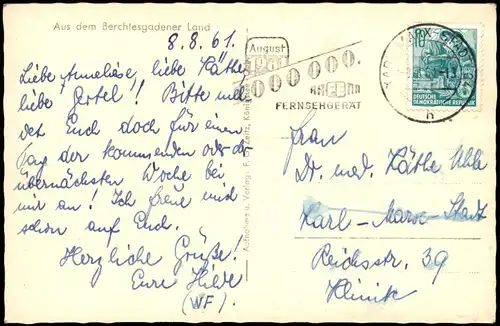 Aus dem Berchtesgadener Land
8.8.61.
Liebe Anneliese, liebe Käthe,
liebe Oertel! Bitte mel
det Euch doch für einen
Tag der kommenden oder
übernächsten Woche bei
mir an! Ich freue mich
schon auf Euch.
Herzliche Grüße!
Eure Hilde
(WF)
Aufnahme u. Verlag: F. G. Zeitz, Königssee
August
1961
1 000 000.
FERNSEHGERÄT
KARL-MARX-STADT
b
10
DEUTSCHE
DEMOKRATISCHE REPUBLIK
Frau
Dr. med. Käthe Uhle
Karl-Marx-Stadt
Reichsstr. 39
Klinik